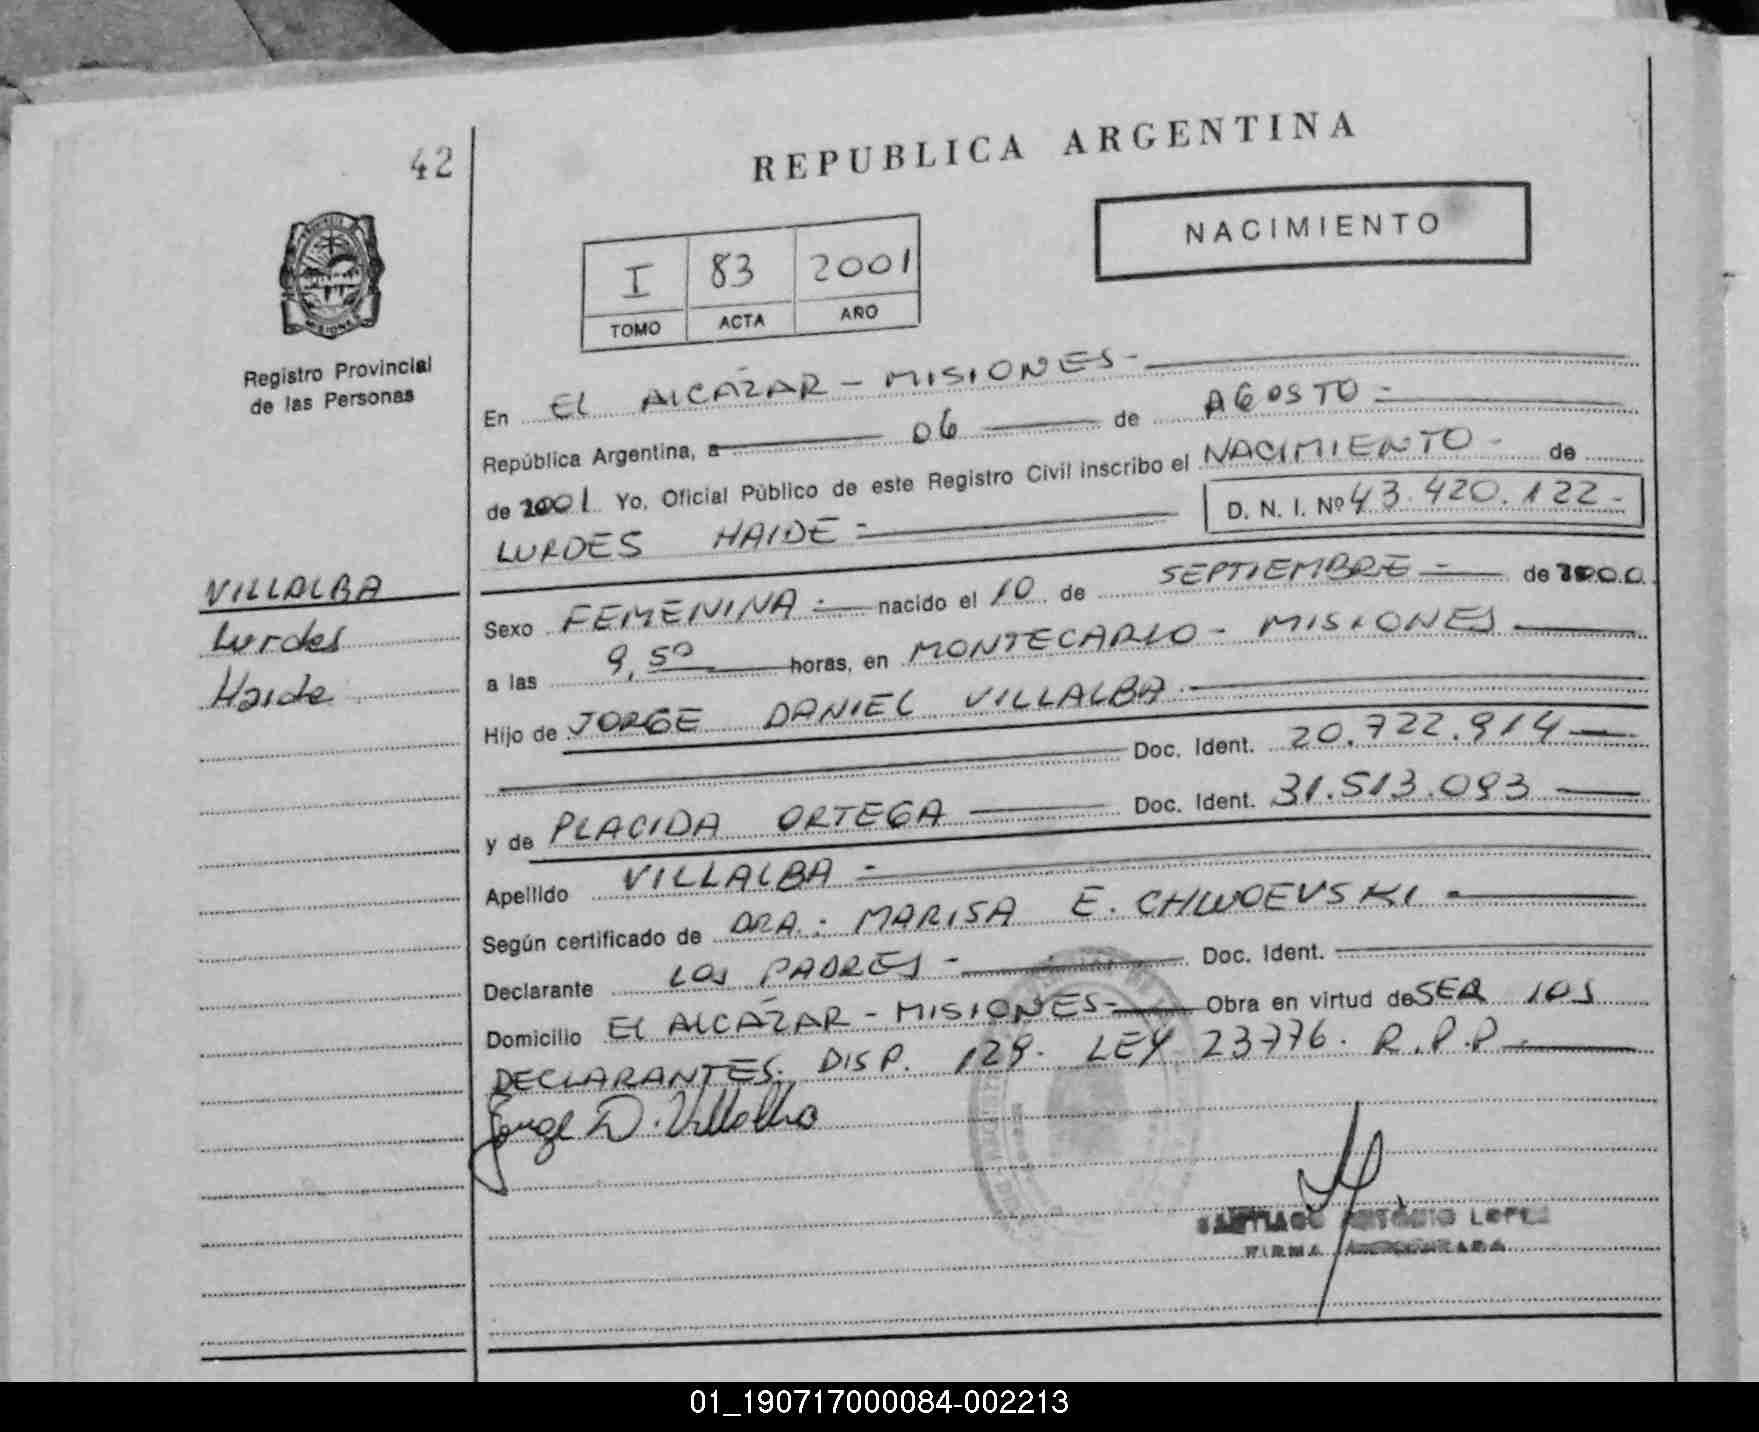 42
REPUBLICA ARGENTINA
NACIMIENTO
I 83 2001
TOMO ACTA AÑO
MISIONES
Registro Provincial
de las Personas
En EL ALCAZAR - MISIONES -
República Argentina, a 06 de AGOSTO
de 2001 Yo, Oficial Público de este Registro Civil inscribo el NACIMIENTO - de
LURDES HAIDE D. N. I. Nº 43.420.122 -
VILLALBA
Lurdes
Haide
Sexo FEMENINA nacido el 10 de SEPTIEMBRE de 2000
a las 9,50 horas, en MONTECARLO - MISIONES
Hijo de JORGE DANIEL VILLALBA
Doc. Ident. 20.722.914
y de PLACIDA ORTEGA Doc. Ident. 31.513.093
Apellido VILLALBA
Según certificado de DRA. MARISA E.
Declarante LOS PADRES - Doc. Ident.
Domicilio EL ALCAZAR - MISIONES - Obra en virtud de SER LOS
DECLARANTES. DISP. 129. LEY 23776. R.P.P
Jorge D. Villalba
SANTIAGO ANTONIO LOPEZ
FIRMA AUTORIZADA
01_190717000084-002213